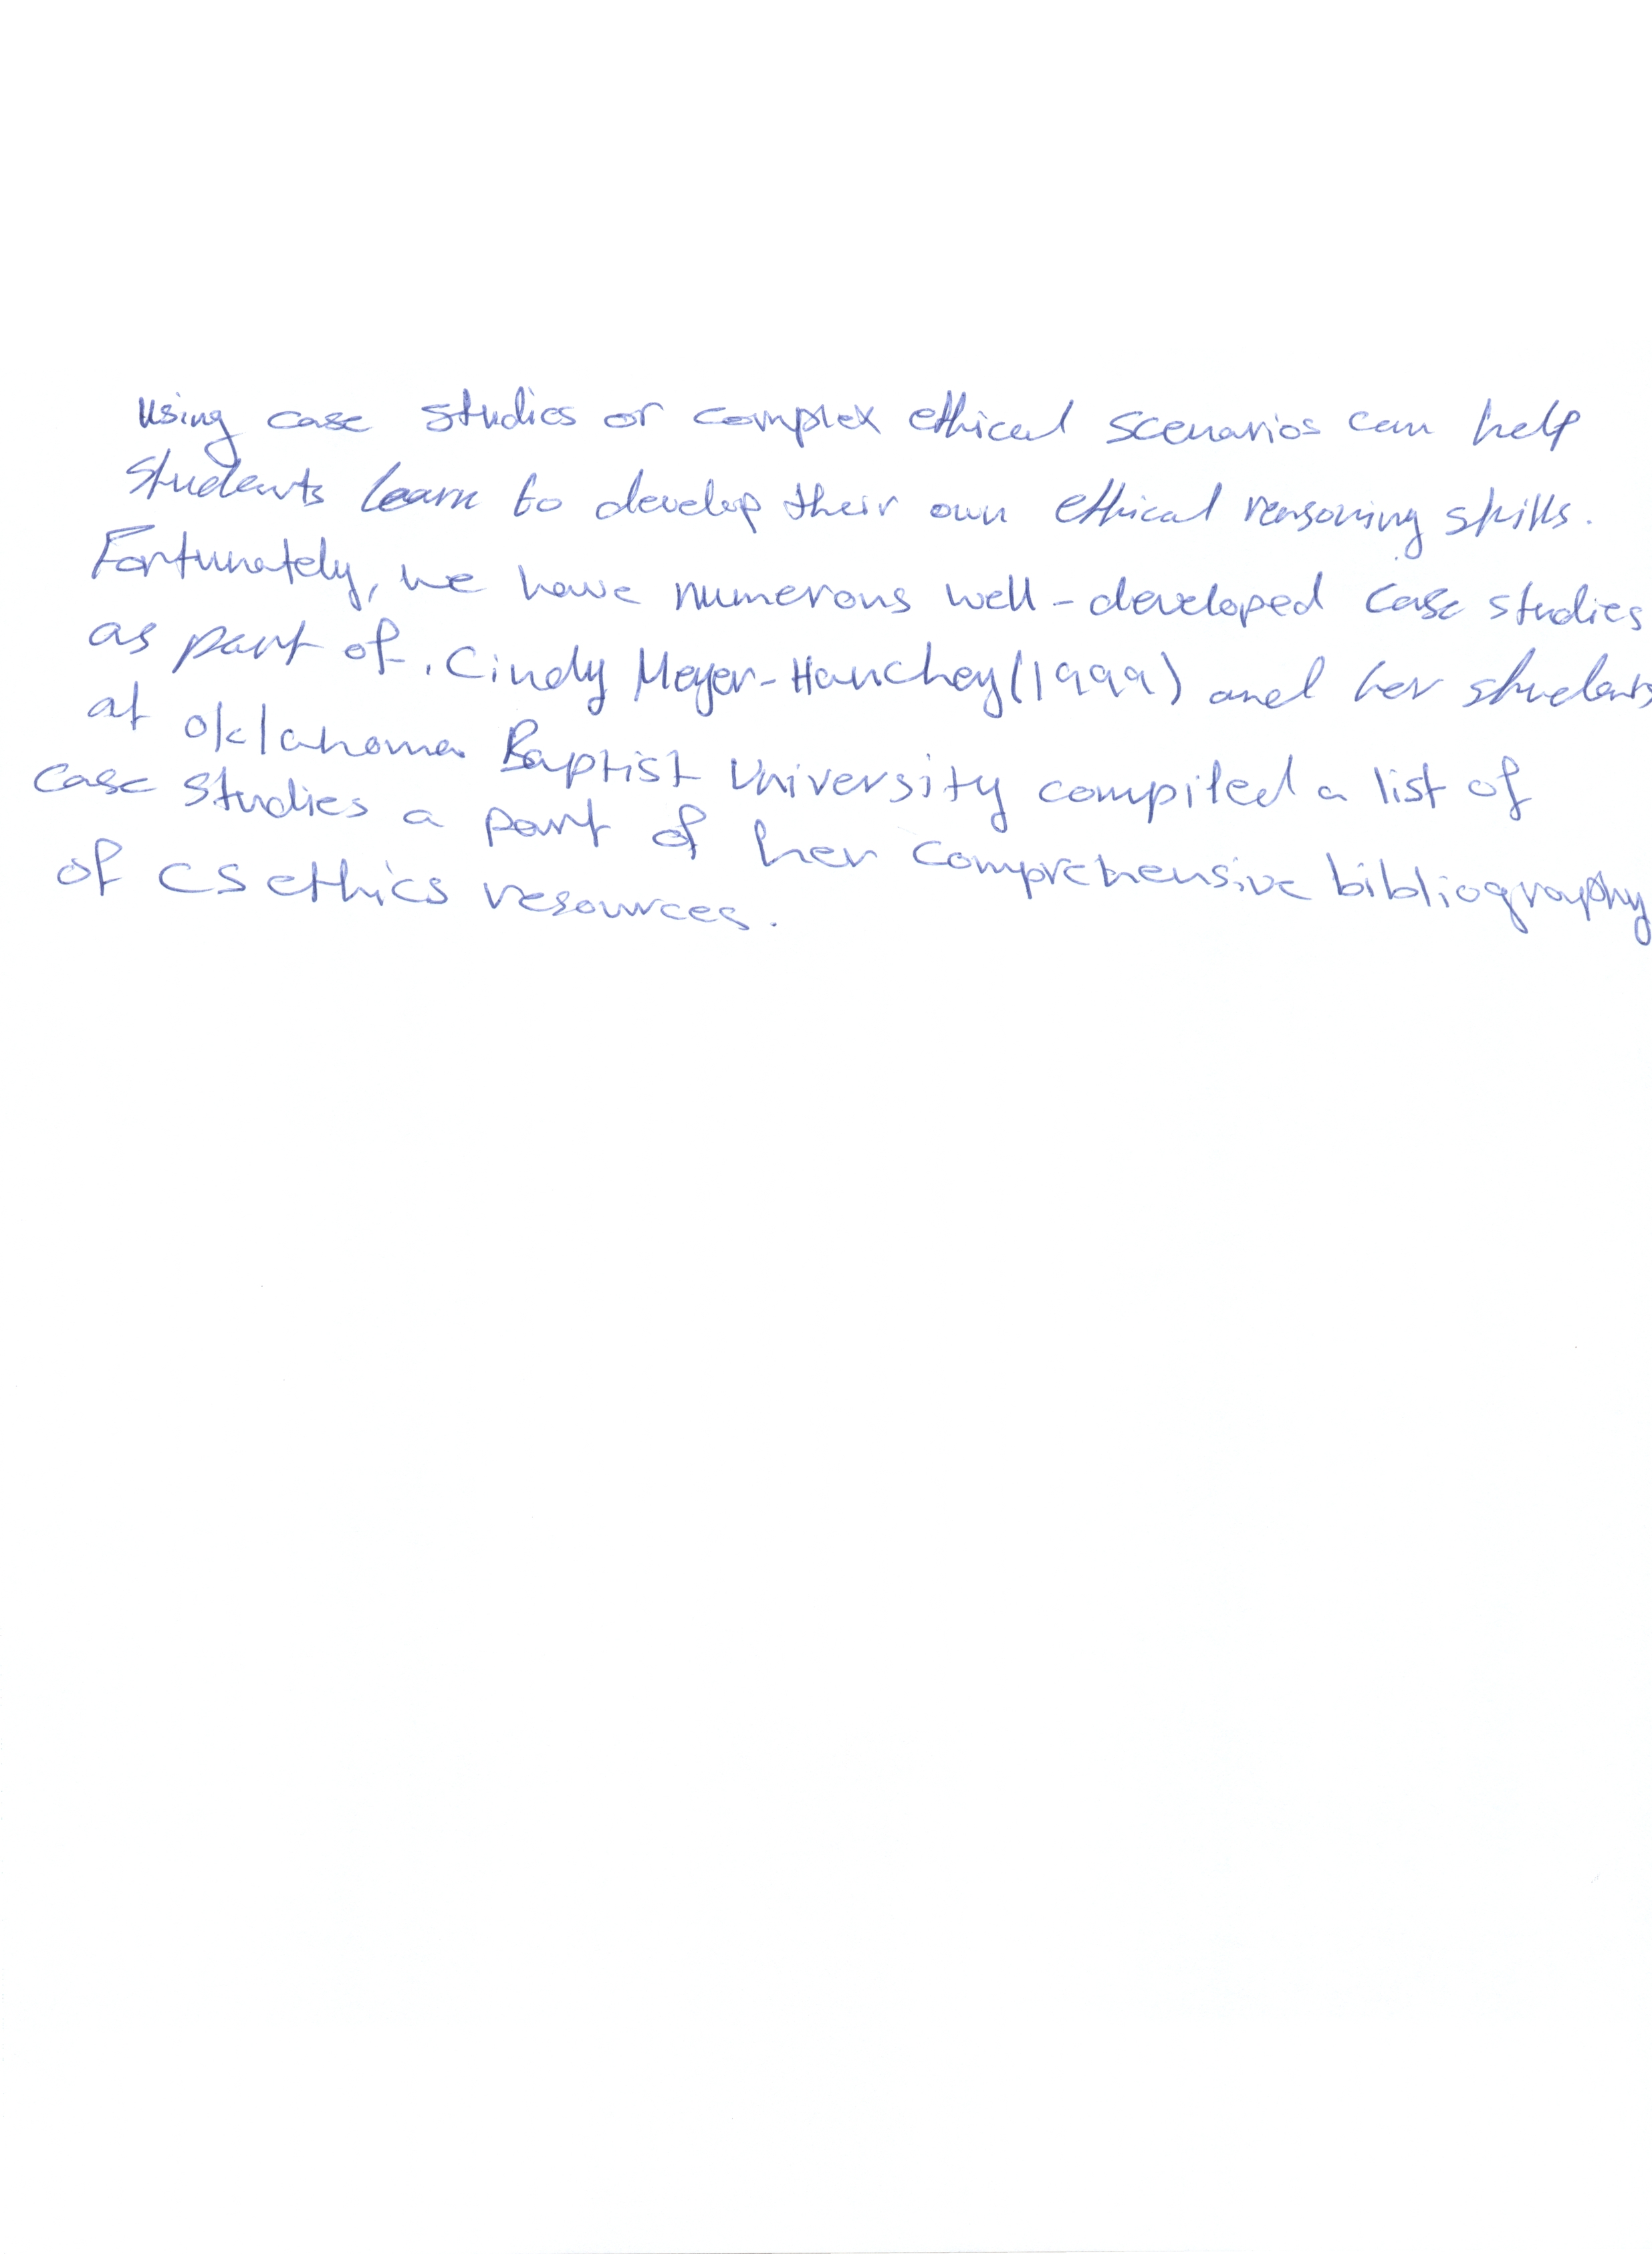 Using case studies or complex ethical scenarios can help
students learn to develop their own ethical reasoning skills.
Fortunately, we have numerous well-developed case studies
as part of. Cindy Meyer-Hanchey(1999) and her students
at Oklahoma Baptist University compiled a list of
case studies a part of her comprehensive bibliography
of CS ethics resources.